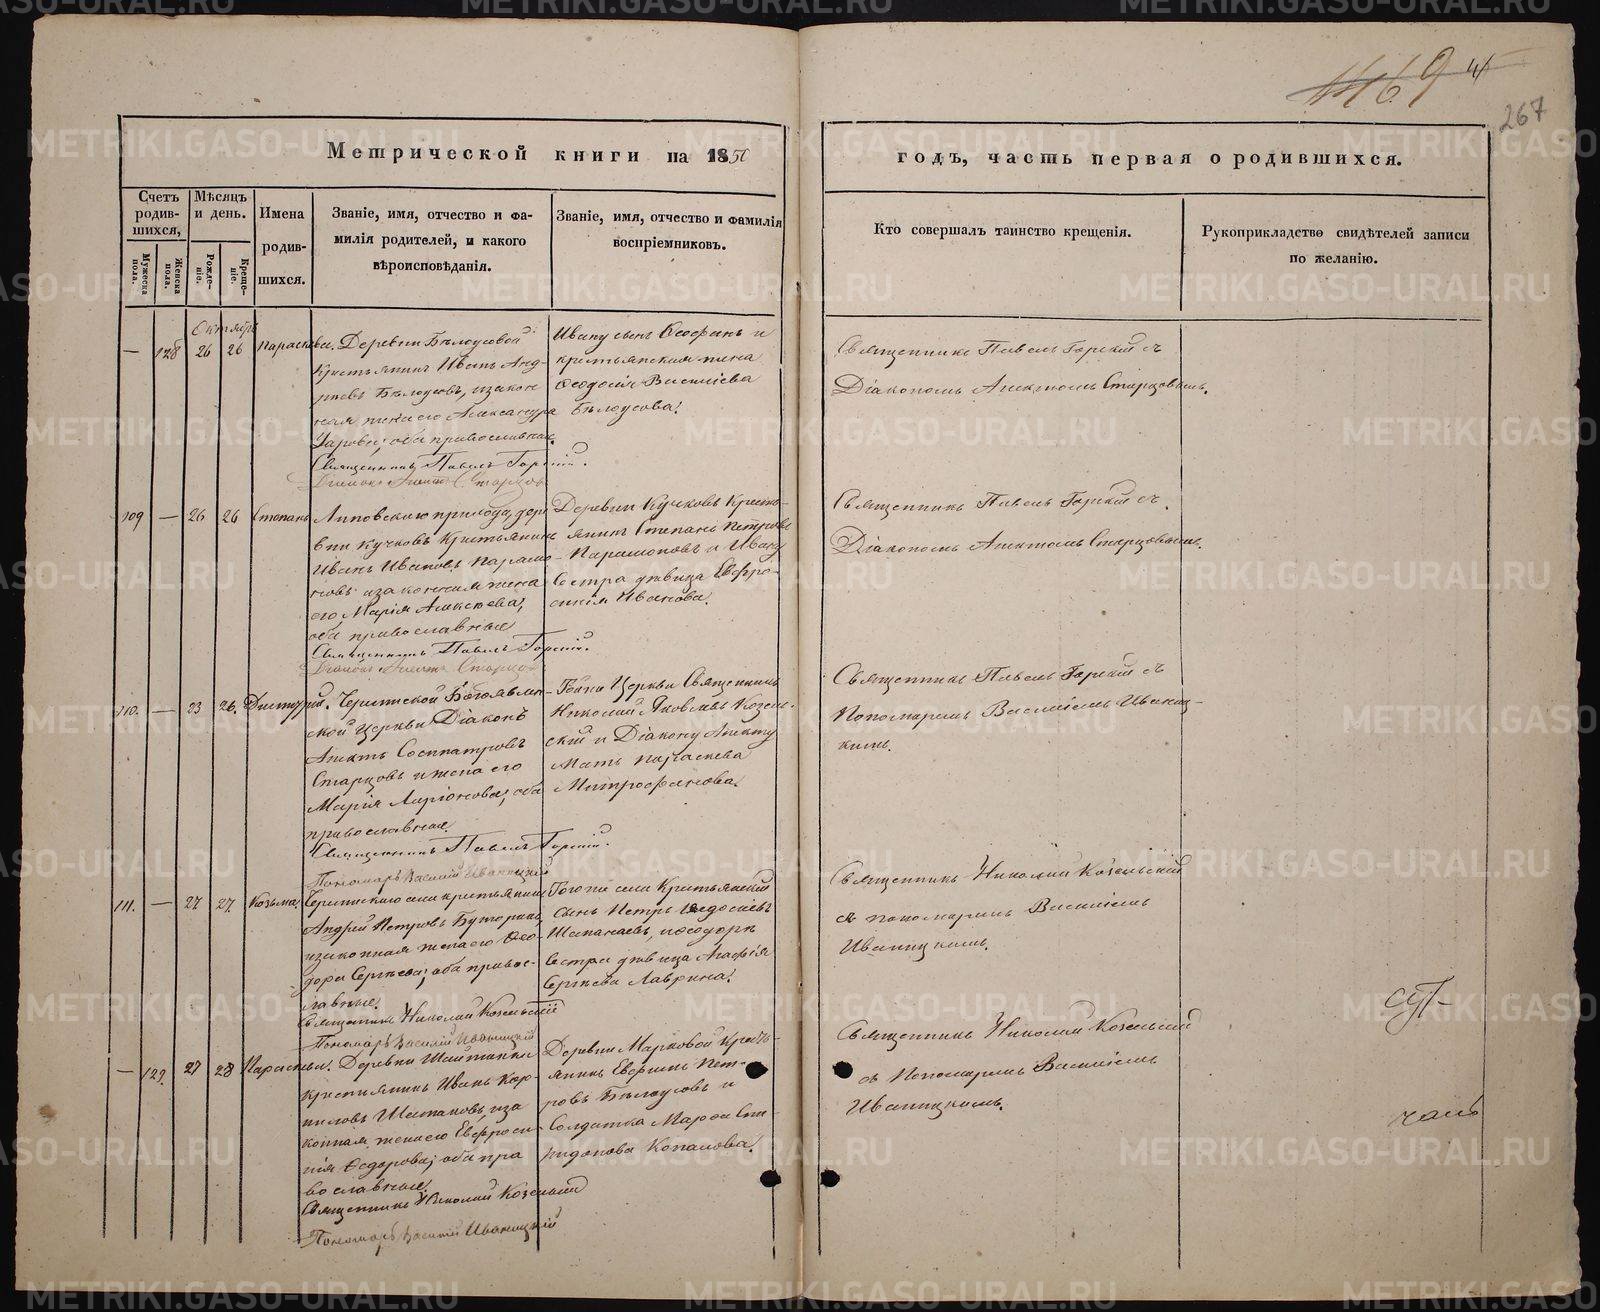 267
Метрической книги на 1850
годъ, часть первая о родившихся.
Счетъ родив-
шихся,
Мужеска пола.
Женска пола.
Мѣсяцъ
и день.
Рожде-
ніе.
Креще-
ніе.
Имена
родив-
шихся.
Званіе, имя, отчество и фа-
милія родителей, и какого
вѣроисповѣданія.
Званіе, имя, отчество и фамилія
воспріемниковъ.
Кто совершалъ таинство крещенія.
Рукоприкладство свидѣтелей записи
по желанію.
Октябрь
— 128 26 26 Параскева. Деревни Бѣлоусовой
крестьянинъ Иванъ Анд-
реевъ Бѣлоусовъ, и закон-
ная жена его Александра
оба православные.
Священникъ Павелъ Горскій.
Ивану сынъ Феофанъ и
крестьянская жена
Феодосія Василіева
Бѣлоусова.
Священникъ Павелъ Горскій съ
Діакономъ Аниктомъ Старцовымъ.
109 — 26 26 Степанъ Липовскаго прихода, дере-
вни Кучковъ крестьянинъ
Иванъ Ивановъ Парамо-
новъ и законная жена
его Марія Алексѣева,
оба православные
Священникъ Павелъ Горскій.
Деревни Кучковъ кресть-
янинъ Степанъ Петровъ
Парамоновъ и Ивану
сестра дѣвица Евфро-
синія Иванова.
Священникъ Павелъ Горскій съ
Діакономъ Аниктомъ Старцовымъ.
110. — 23 26. Димитрій. Черемисской Богоявлен-
ской церкви Діаконъ
Аниктъ Сосипатровъ
Старцовъ и жена его
Марія Ларіонова; оба
православные.
Священникъ Павелъ Горскій.
Пономарь Василій Иваницкій
Тойже Церкви Священникъ
Николай Яковлевъ Козель-
скій и Діакону Аникту
Мать Параскева
Митрофанова.
Священникъ Павелъ Горскій съ
Пономаремъ Василіемъ Иваниц-
кимъ.
111. — 27 27. Козьма. Черемисскаго села крестьянинъ
Андрей Петровъ Бутаринъ,
и законная жена его Фео-
дора Сергѣева; оба правос-
лавные.
Священникъ Николай Козельскій
Пономарь Василій Иваницкій
Тогоже села Крестьянскій
сынъ Петръ Федосѣевъ
Шаманаевъ, и Феодоры
сестра дѣвица Агафія
Сергѣева Лаврина.
Священникъ Николай Козельскій
съ пономаремъ Василіемъ
Иваницкимъ.
— 129. 27 28 Параскева. Деревни Шайтанки
крестьянинъ Иванъ Кор-
ниловъ Шатаковъ, и за-
конная жена его Евфроси-
нія Федорова; оба пра-
вославные.
Священникъ Николай Козельскій
Пономарь Василій Иваницкій
Деревни Марковой Кресть-
янинъ Евфимъ Пет-
ровъ Бѣлоусовъ и
Солдатка Марфа Спи-
ридонова Копалова.
Священникъ Николай Козельскій
съ Пономаремъ Василіемъ
Иваницкимъ.
METRIKI.GASO-URAL.RU